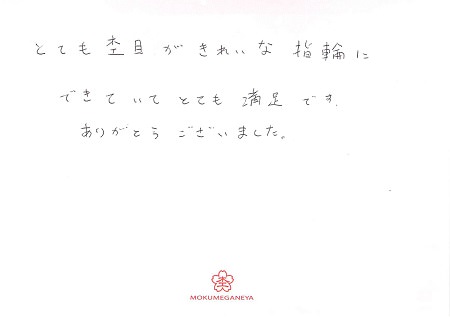 とても杢目がきれいな指輪に
できていてとても満足です.
ありがとうございました。
MOKUMEGANEYA